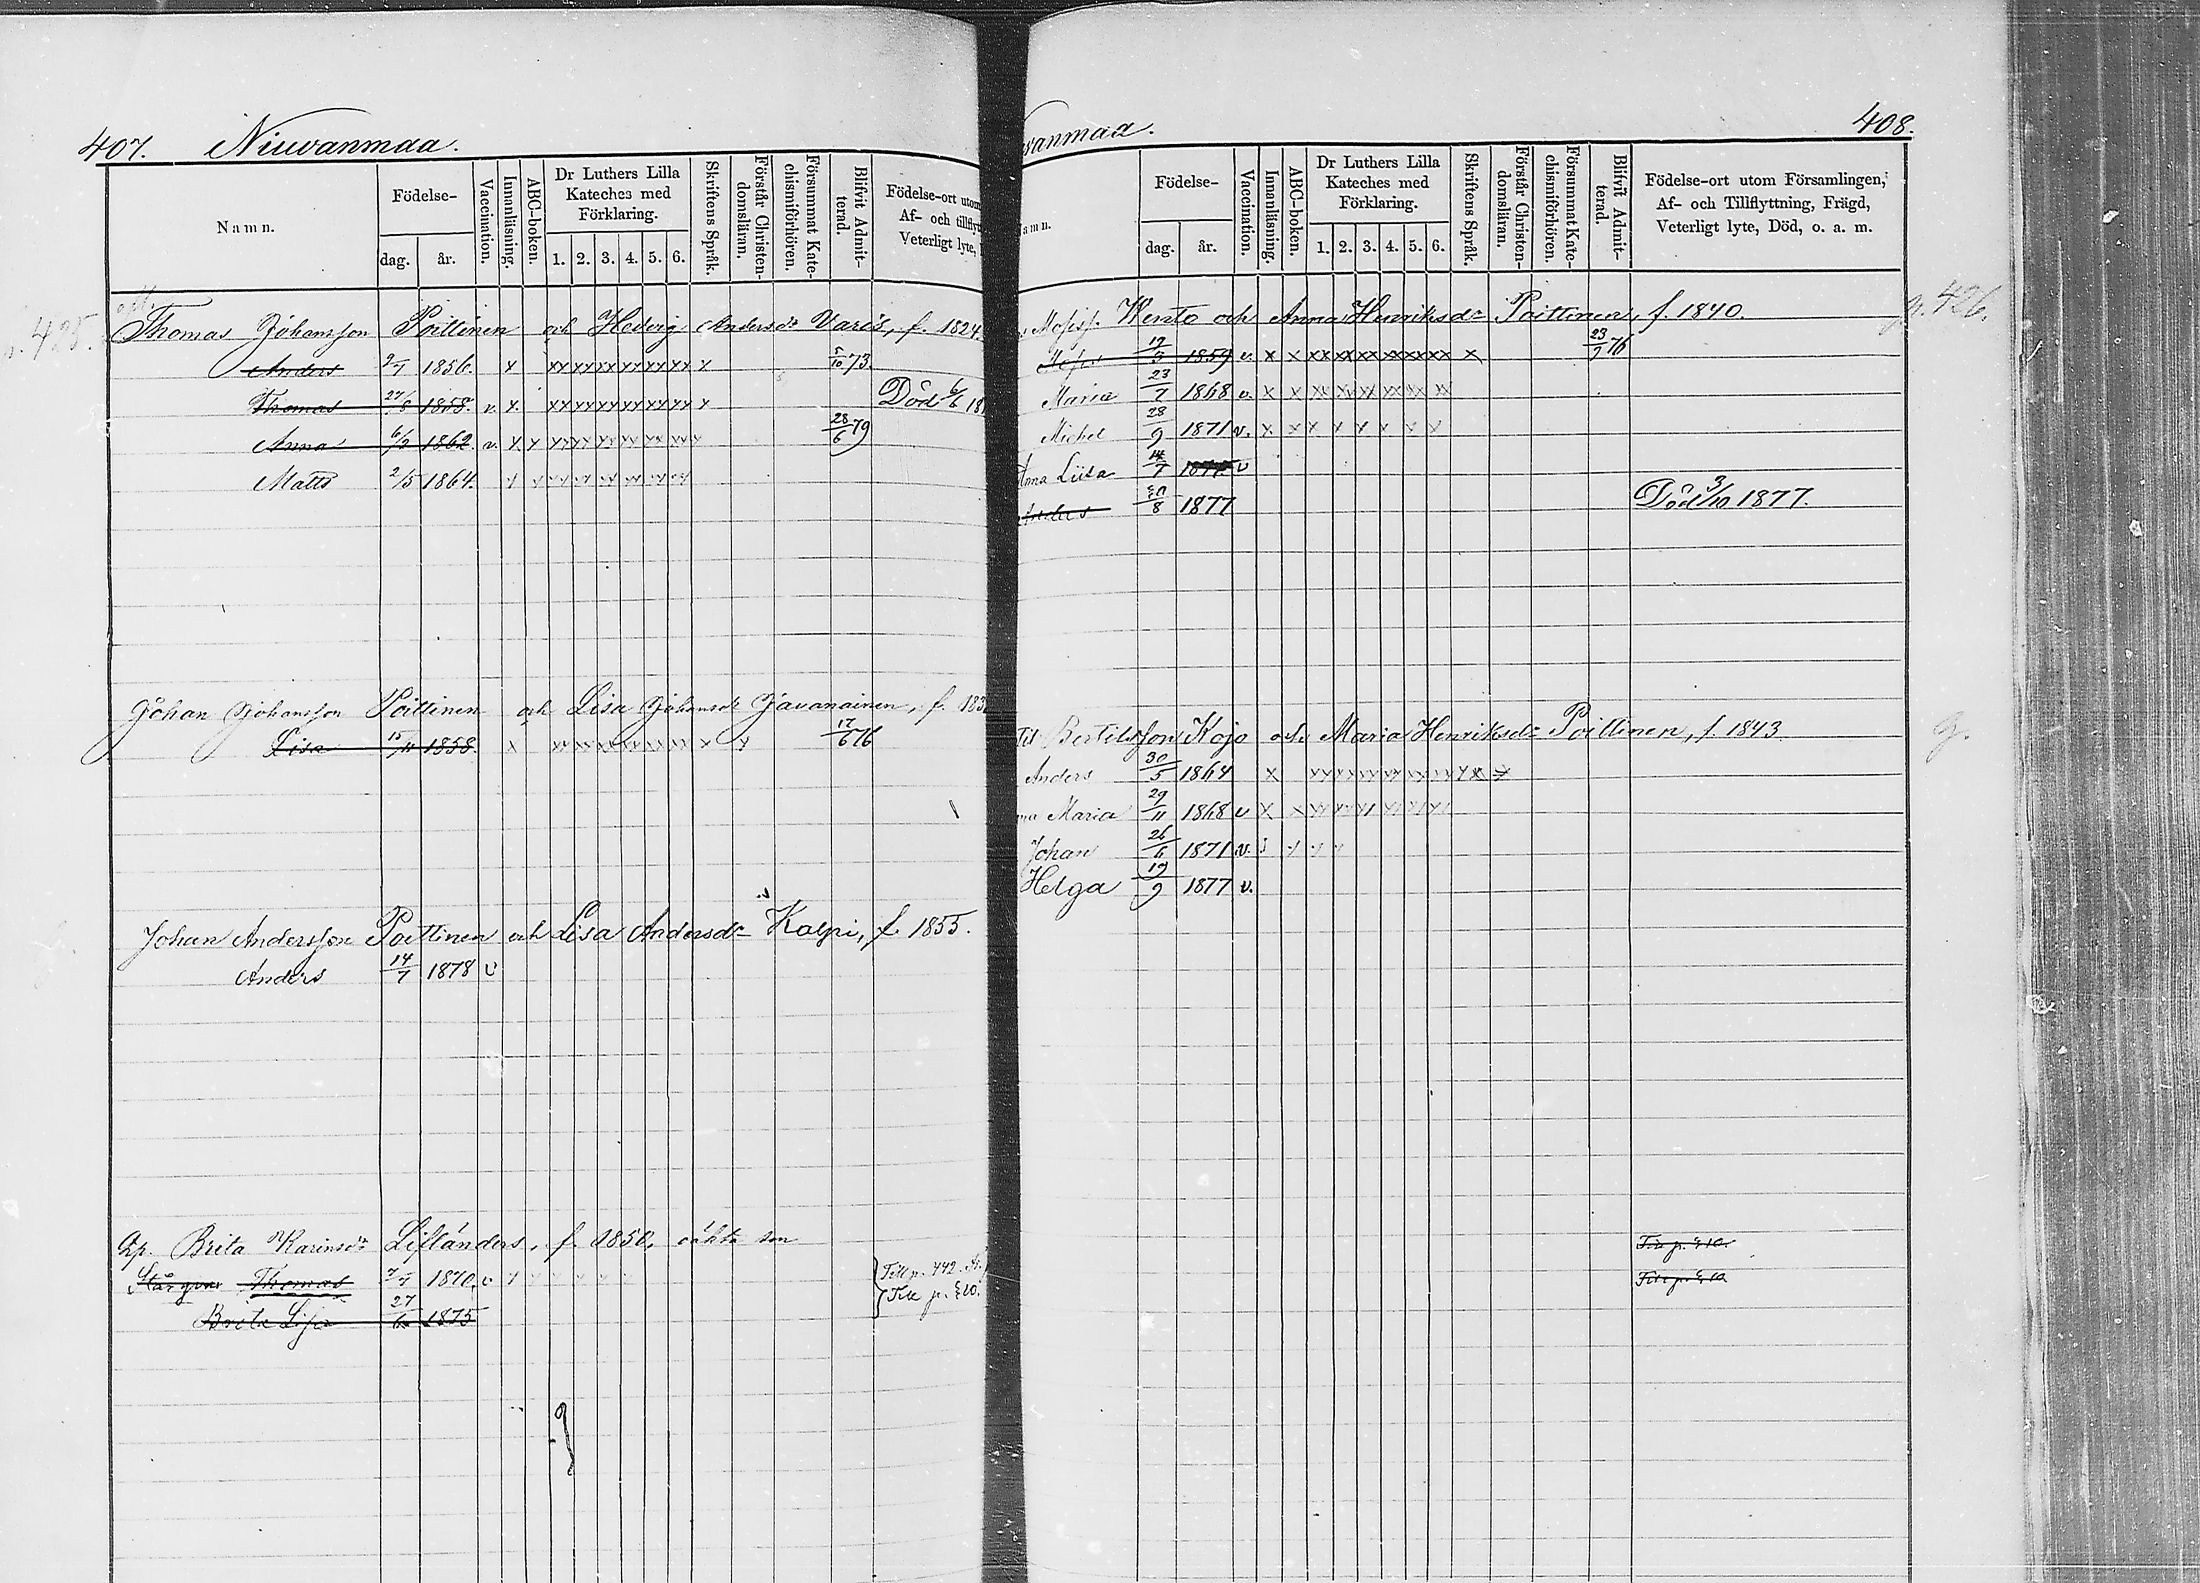 407. Niuvanmaa.
Namn. Födelse- dag. år. Vaccination. Innanläsning. ABC-boken. Dr Luthers Lilla Kateches med Förklaring. 1. 2. 3. 4. 5. 6. Skriftens Språk. Förstår Christendomsläran. Försummat Katechismiförhören. Blifvit Admitterad. Födelse-ort utom Af- och tillflytt Veterligt lyte,
p. 425. Thomas Johansson Poittinen och Hedvig Andersdr Varis, f. 1824
Anders 2/7 1856. x xx xx xx xx xx xx x 5/10 73.
Thomas 27/8 1858. v. x. xx xx xx xx xx xx x Död 6/6 18
Anna 6/9 1862. v. x x xx xx xx xx xx xx x 28/6 79
Matts 2/5 1864.
Johan Johansson Poittinen och Lisa Johansdr Javanainen, f. 183
Lisa 15/11 1858. x xx xx xx xx xx xx x x 17/6 76
Johan Andersson Poittinen och Lisa Andersdr Kalpi, f. 1855.
Anders 14/7 1878 v
Brita Karinsdr Lifländers, f. 1850, oäkta son
Thomas 1870. v
Till p. 442.
Brita Lisa 27/6 1875
Till p. 810.
vanmaa. 408.
amn. Födelse- dag. år. Vaccination. Innanläsning. ABC-boken. Dr Luthers Lilla Kateches med Förklaring. 1. 2. 3. 4. 5. 6. Skriftens Språk. Förstår Christendomsläran. Försummat Katechismiförhören. Blifvit Admitterad. Födelse-ort utom Församlingen, Af- och Tillflyttning, Frägd, Veterligt lyte, Död, o. a. m.
Mosiss. Wento och Anna Henriksdr Poittinen, f. 1840. p. 426.
19/3 1859 v. x x xx xx xx xx xx xx x 23/9 76
Maria 23/7 1868 v. x x xx xx xx xx xx xx
Michel 28/9 1871 v. x xx x x x x x x
Anna Liisa 14/7 v
Anders 1877 Död 3/10 1877.
Bertilsson Kojo och Maria Henriksdr Poittinen, f. 1843
Anders 30/5 1864 x
Maria 29/11 1868 v x x
Johan 26/6 1871 v.
Helga 19/9 1877 v.